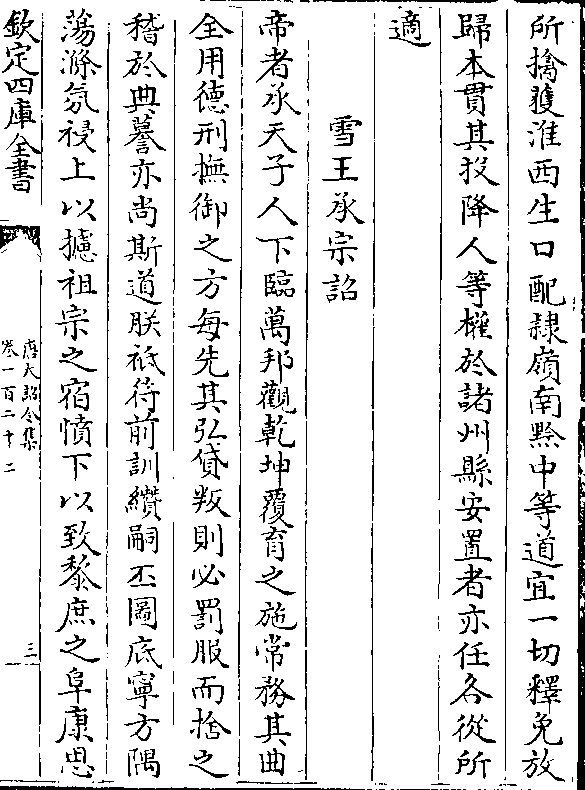 所擒獲淮西生口配隷嶺南黔中等道宜一切釋免放
歸本貫其投降人等權於諸州縣安置者亦任各從所
適
雪王承宗詔
帝者承天子人下臨萬邦觀乾坤覆育之施常務其曲
全用德刑撫御之方每先其弘貸叛則必罰服而捨之
稽於典謩亦尚斯道朕祗符前訓纘嗣丕圖底寧方隅
蕩滌氛祲上以攄祖宗之宿憤下以致黎庶之阜康思
欽定四庫全書
唐大詔令集
卷一百二十二
三